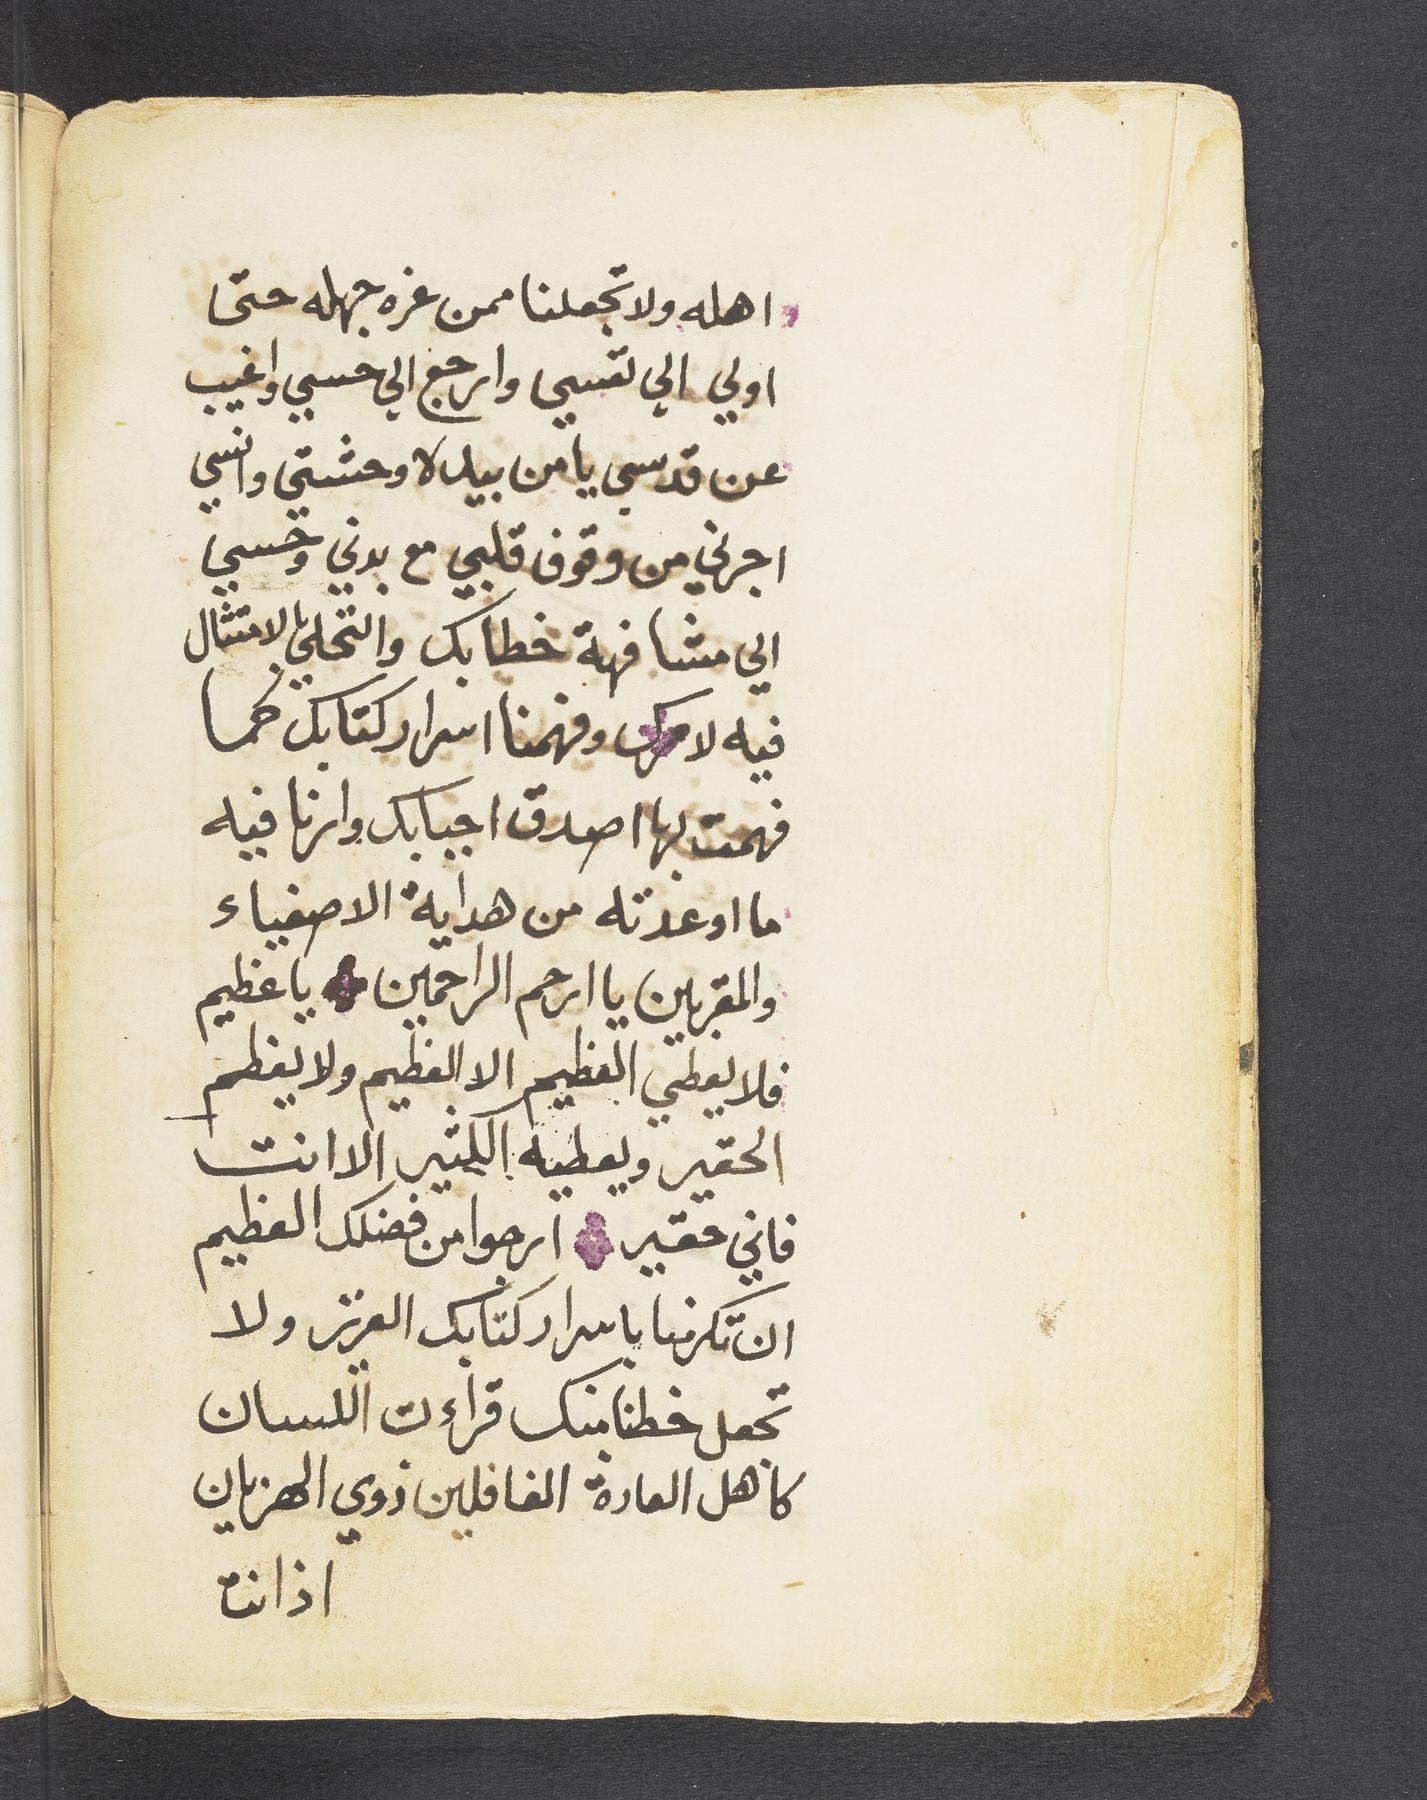 اهله ولا تجعلنا ممن غره جهله حتى
اولي الي نفسي وارجع الي حسي واغيب
عن قدسي يا من بيده لا وحشتي وانسي
اجرني من وقوف قلبي مع بدني وحسي
الي مشافهة خطابك والتحلي بالامتثال
فيه لامرك وفهمنا اسرار كتابك كما
فهمت بها اصدق احبابك وارنا فيه
ما اوعدته من هداية الاصفياء
والمقربين يا ارحم الراحمين يا عظيم
فلا يعطي العظيم الا العظيم ولا يعظم
الحقير ويعطيه الكثير الا انت
فاني حقير ارجوا من فضلك العظيم
ان تكرمنا باسرار كتابك العزيز ولا
تجعل خطنا منك قراءت اللسان
كاهل العادة الغافلين ذوي الهزيان
اذا انت